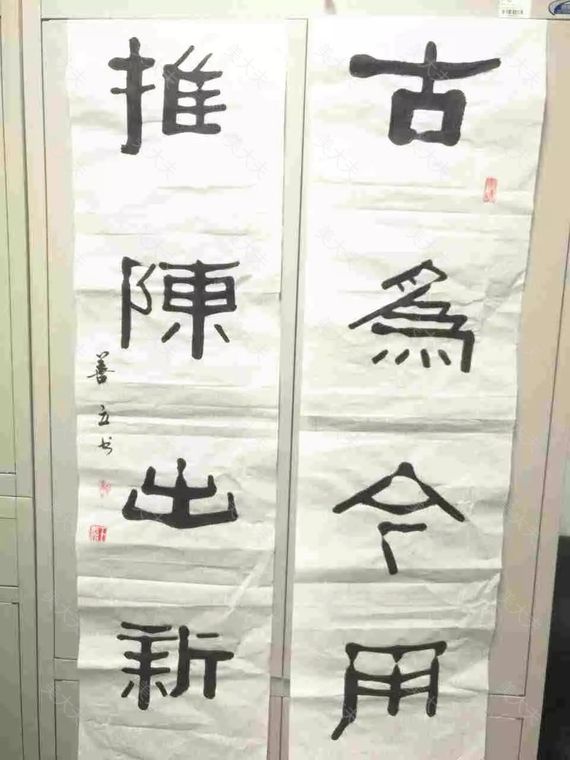 古為今用
推陳出新
善立书